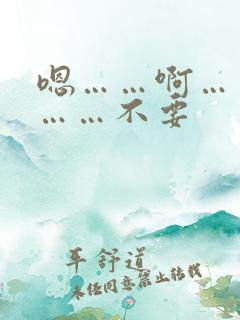 嗯……啊…
……不要
平舒道
未经同意禁止转载